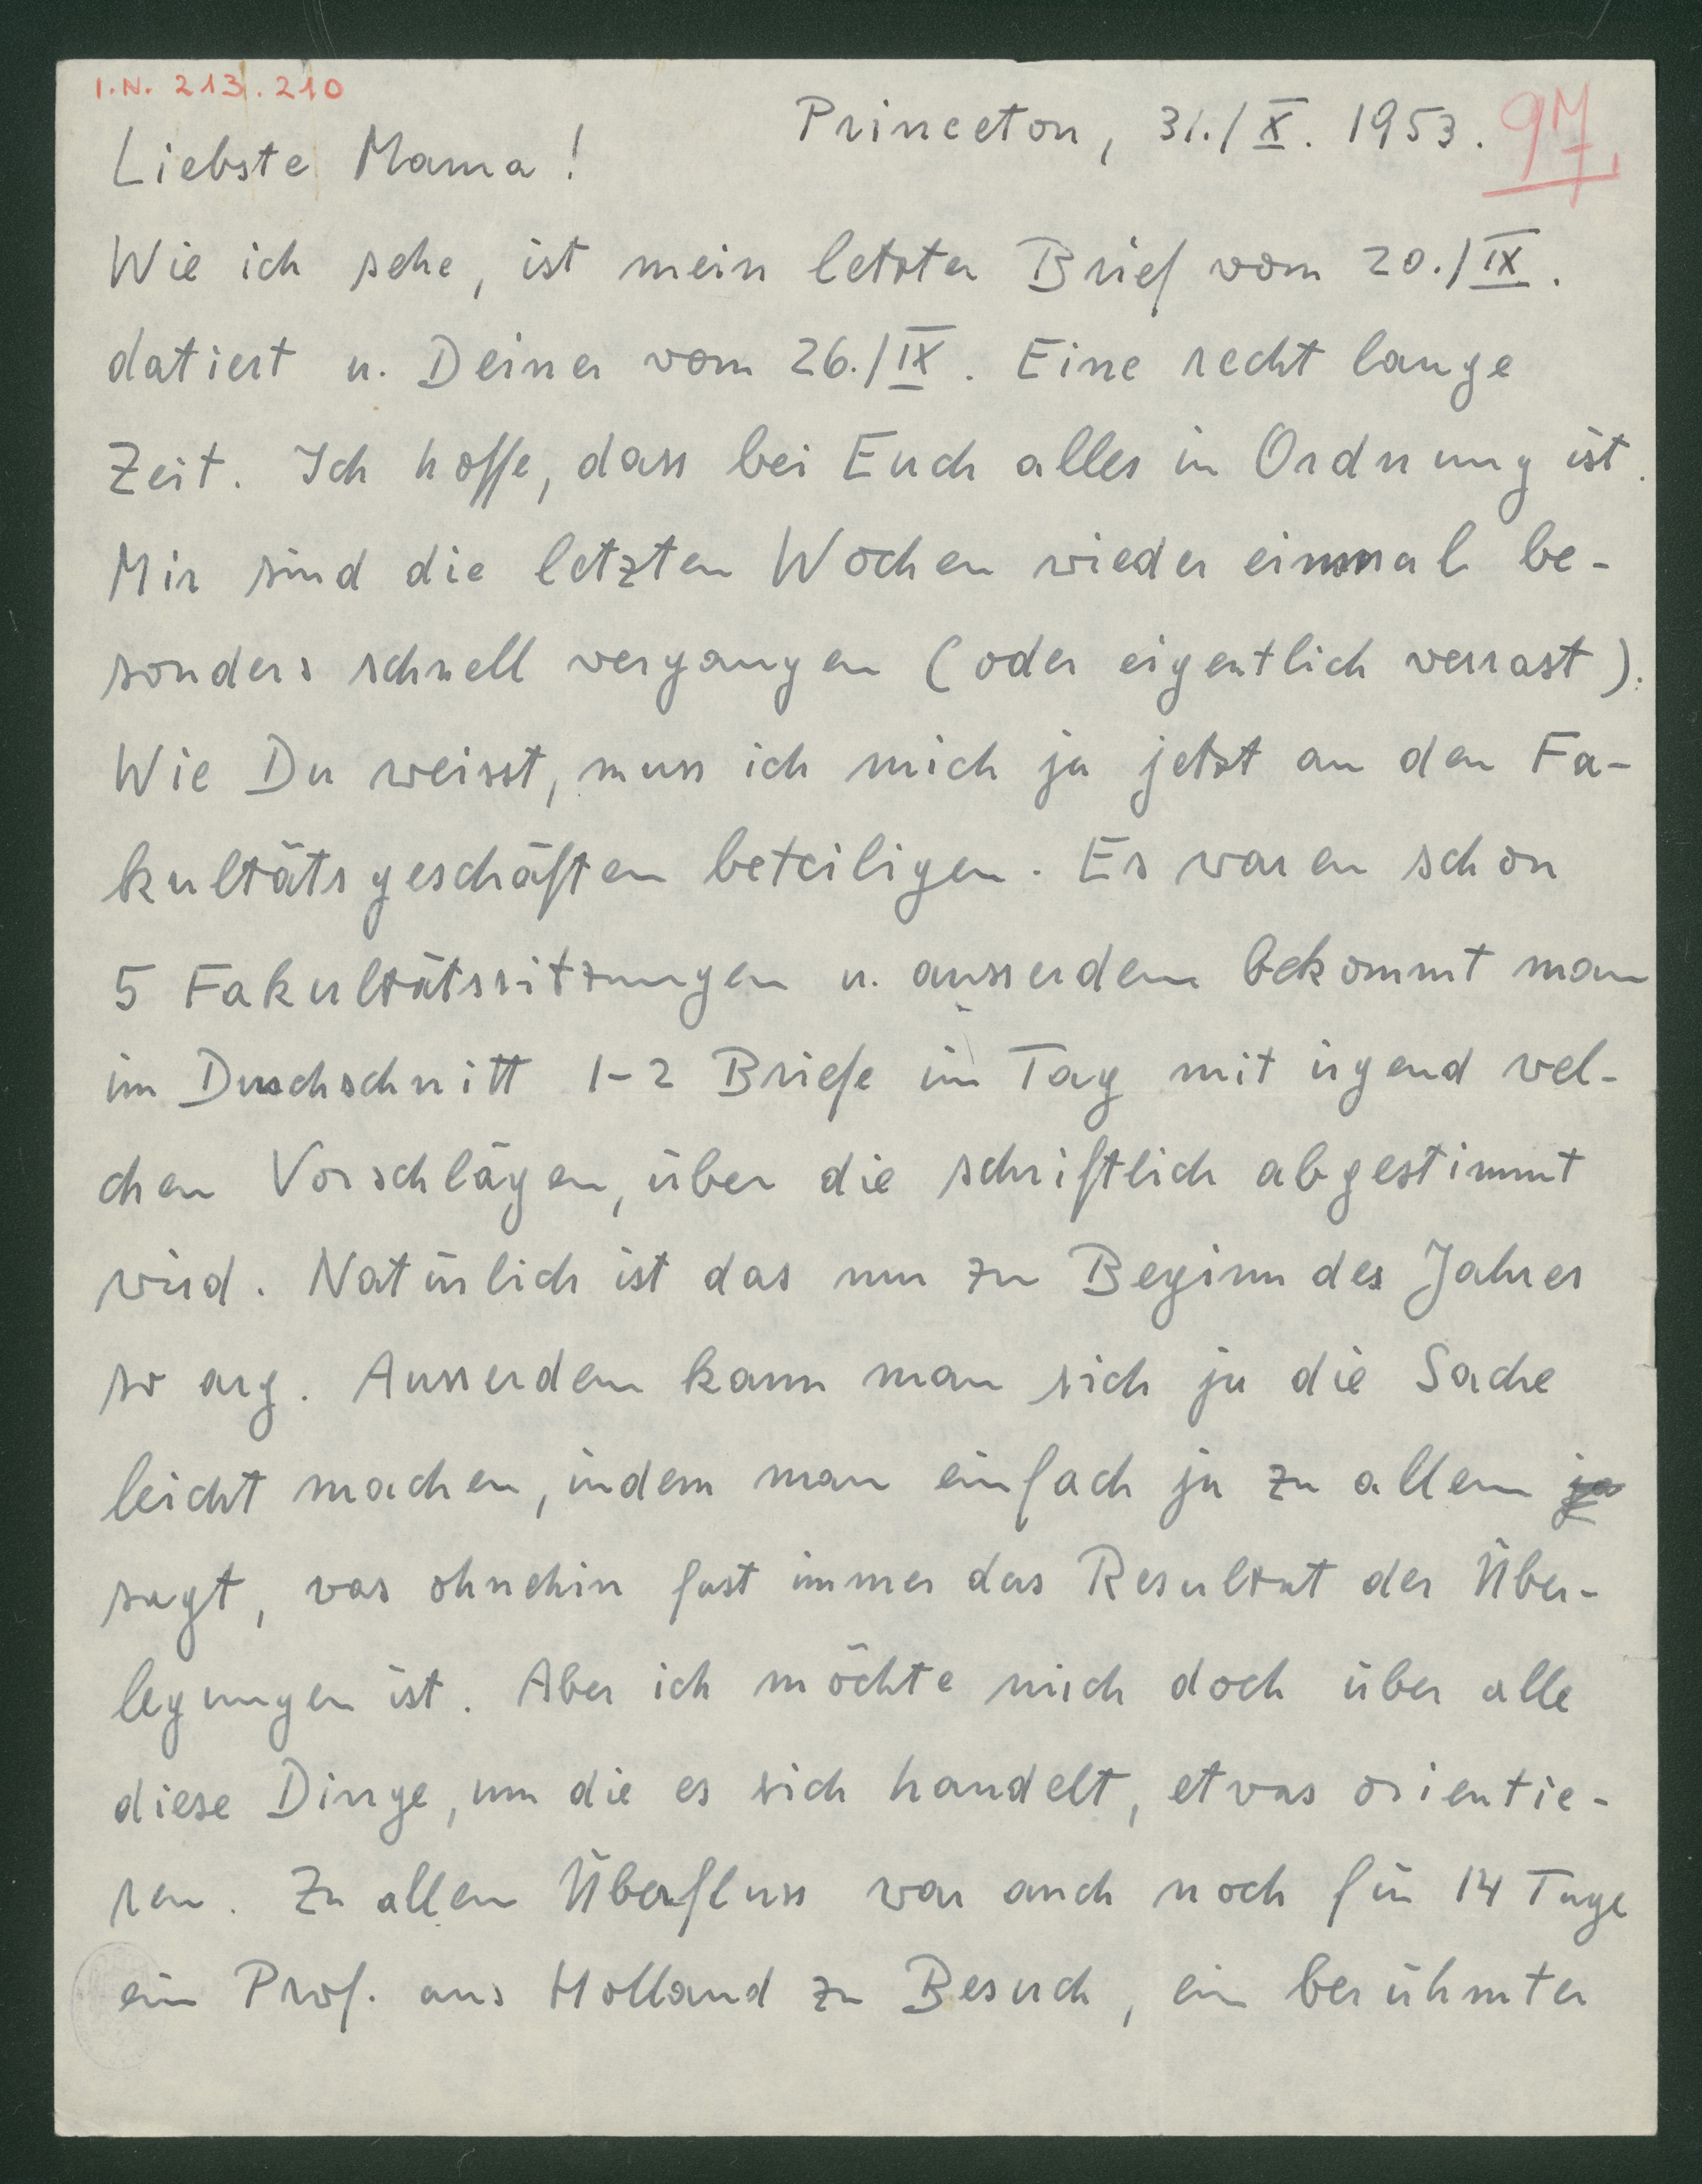 I.N. 213.210
Princeton, 31./X. 1953. 97,
Liebste Mama!
Wie ich sehe, ist mein letzter Brief vom 20./IX.
datiert u. Deiner vom 26./IX. Eine recht lange
Zeit. Ich hoffe, dass bei Euch alles in Ordnung ist.
Mir sind die letzten Wochen wieder einmal be-
sonders schnell vergangen (oder eigentlich verrast).
Wie Du weisst, muss ich mich ja jetzt an den Fa-
kultätsgeschäften beteiligen. Es waren schon
5 Fakultätssitzungen u. ausserdem bekommt man
im Durchschnitt 1-2 Briefe im Tag mit irgend wel-
chen Vorschlägen, über die schriftlich abgestimmt
wird. Natürlich ist das nur zu Beginn des Jahres
so arg. Ausserdem kann man sich ja die Sache
leicht machen, indem man einfach ja zu allem ja
sagt, was ohnehin fast immer das Resultat der Über-
legungen ist. Aber ich möchte mich doch über alle
diese Dinge, um die es sich handelt, etwas orientie-
ren. Zu allem Überfluss war auch noch für 14 Tage
ein Prof. aus Holland zu Besuch, ein berühmter